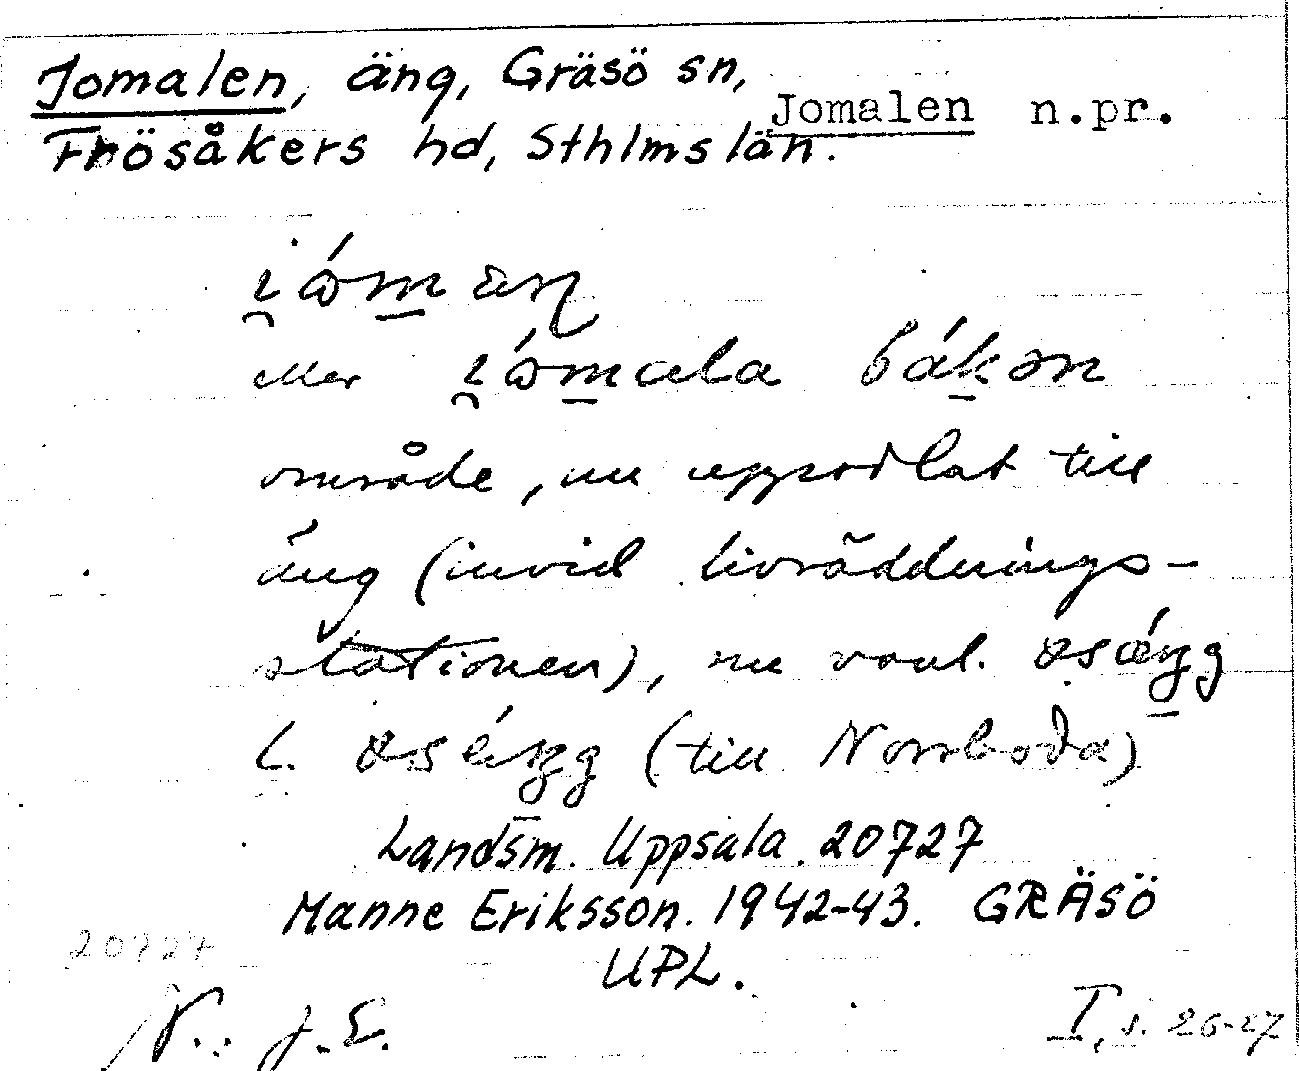 Jomalen, äng, Gräsö sn,
Jomalen n.pr.
Frösåkers hd, Sthlms län.
eller bákən
område, nu uppodlat till
äng (invid livräddnings-
stationen), nu vanl.
l. (till Norrboda)
Landsm. Uppsala. 20727
Manne Eriksson. 1942-43. GRÄSÖ
UPL.
20727
N.: J.E.
I, s. 26-27